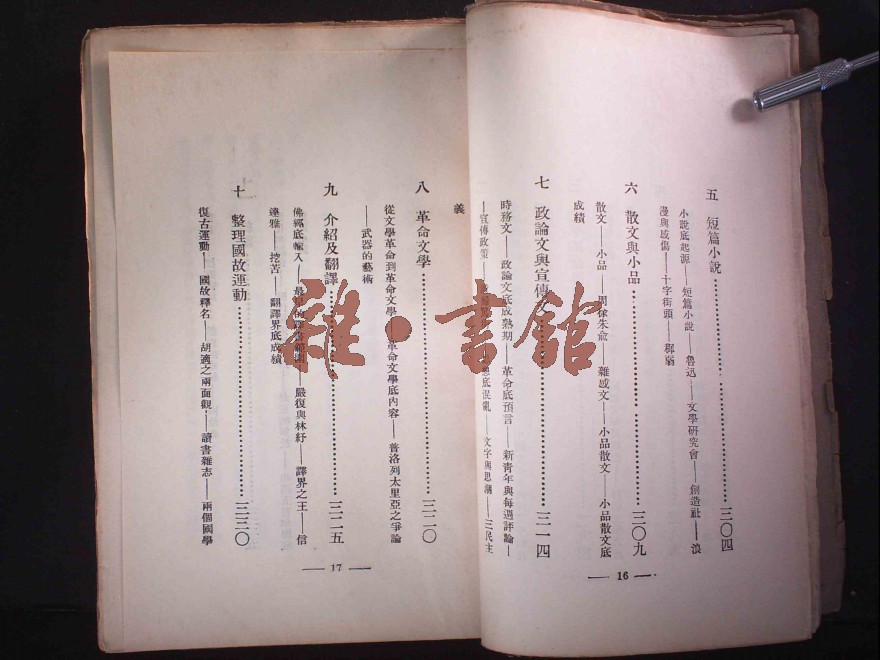 五　短篇小說……三〇四
小說底起源——短篇小說——魯迅——文學研究會——創造社——浪
漫與感傷——十字街頭——鄉
六　散文與小品……三〇九
散文——小品——周徐朱俞——雜感文——小品散文——小品散文底
成績
七　政論文與宣傳文……三一四
時務文——政論文底成熟期——革命底預言——新青年與每週評論——
——宣傳政策——底混亂——文字與思潮——三民主
義
— 16 —
八　革命文學……三二〇
從文學革命到革命文學——革命文學底內容——普洛列太里亞之爭論
——武器的藝術
九　介紹及翻譯……三二五
佛經底輸入——嚴復與林紓——譯界之王——信
達雅——挖苦——翻譯界底成績
十　整理國故運動……三三〇
復古運動——國故釋名——胡適之兩面觀——讀書雜志——兩個國學
— 17 —
雜·書館